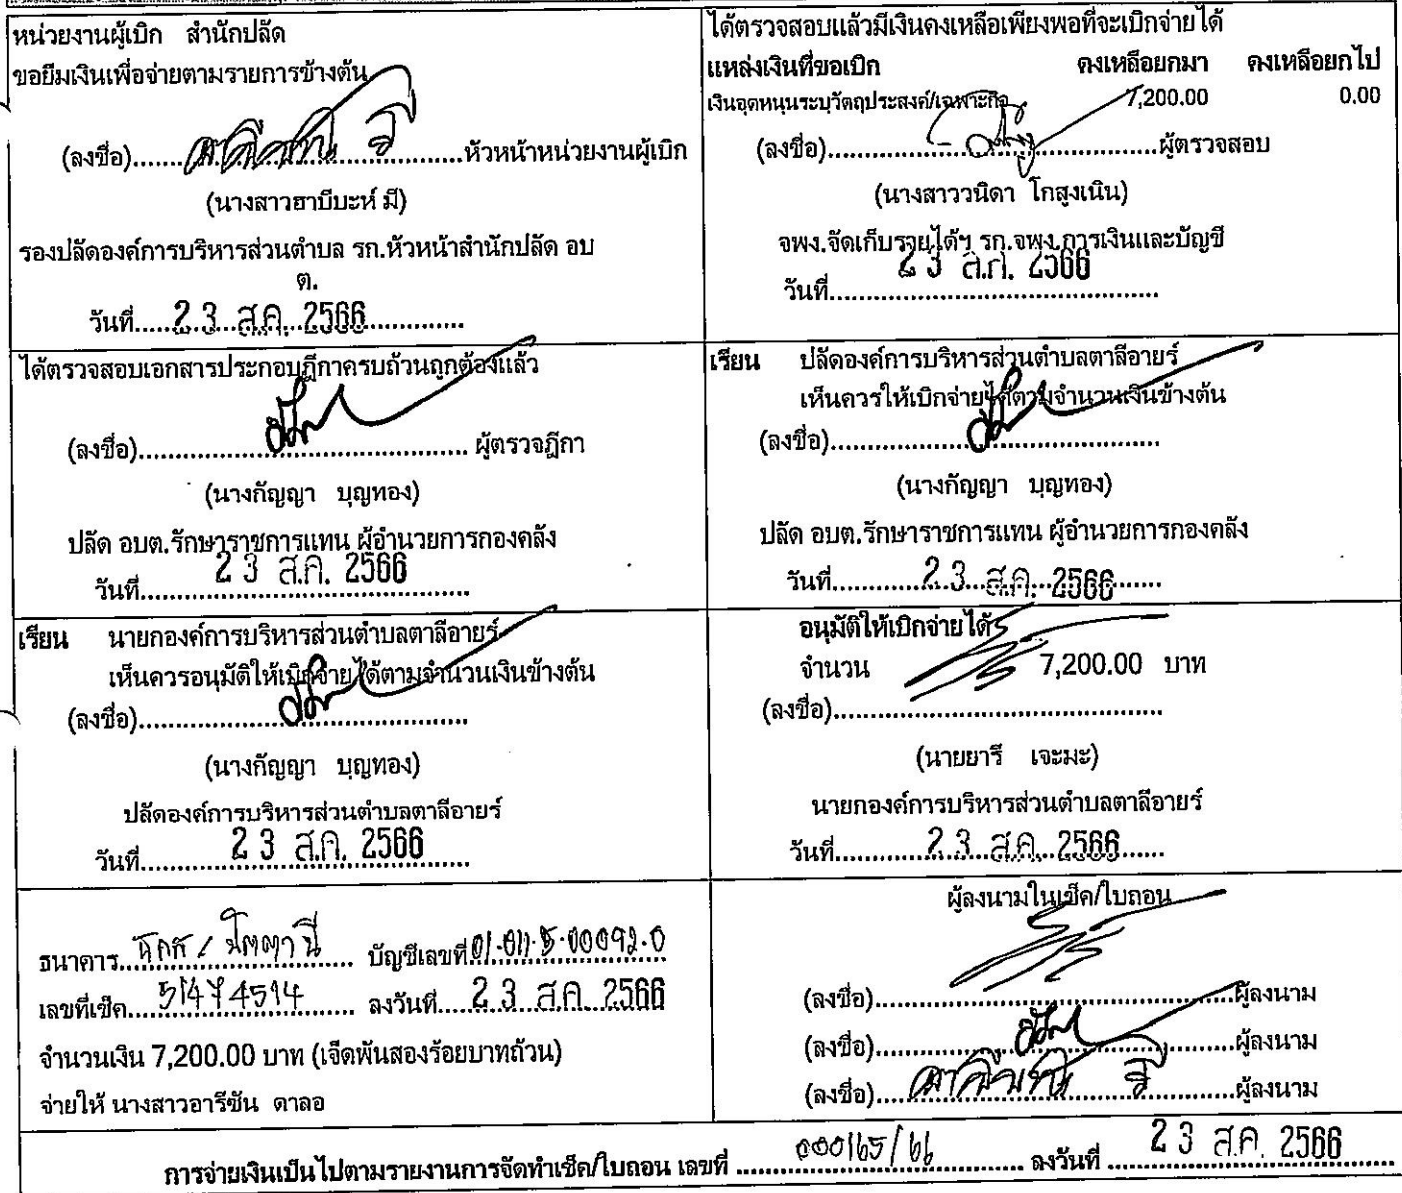 หน่วยงานผู้เบิก สำนักปลัด
ขอยืมเงินเพื่อจ่ายตามรายการข้างต้น
(ลงชื่อ)..........หัวหน้าหน่วยงานผู้เบิก
(นางสาวฮาบีบะห์ มี)
รองปลัดองค์การบริหารส่วนตำบล รก.หัวหน้าสำนักปลัด อบ
ต.
วันที่.....2 3 ส.ค. 2566..........
ได้ตรวจสอบแล้วมีเงินคงเหลือเพียงพอที่จะเบิกจ่ายได้
แหล่งเงินที่ขอเบิก คงเหลือยกมา คงเหลือยกไป
เงินอุดหนุนระบุวัตถุประสงค์/เฉพาะกิจ 7,200.00 0.00
(ลงชื่อ)..........ผู้ตรวจสอบ
(นางสาววนิดา โกสูงเนิน)
จพง.จัดเก็บรายได้ฯ รก.จพง.การเงินและบัญชี
วันที่.....2 3 ส.ค. 2566..........
ได้ตรวจสอบเอกสารประกอบฎีกาครบถ้วนถูกต้องแล้ว
(ลงชื่อ).......... ผู้ตรวจฎีกา
(นางกัญญา บุญทอง)
ปลัด อบต.รักษาราชการแทน ผู้อำนวยการกองคลัง
วันที่.....2 3 ส.ค. 2566..........
เรียน ปลัดองค์การบริหารส่วนตำบลตาลีอายร์
เห็นควรให้เบิกจ่ายได้ตามจำนวนเงินข้างต้น
(ลงชื่อ)..........
(นางกัญญา บุญทอง)
ปลัด อบต.รักษาราชการแทน ผู้อำนวยการกองคลัง
วันที่.....2 3 ส.ค. 2566..........
เรียน นายกองค์การบริหารส่วนตำบลตาลีอายร์
เห็นควรอนุมัติให้เบิกจ่ายได้ตามจำนวนเงินข้างต้น
(ลงชื่อ)..........
(นางกัญญา บุญทอง)
ปลัดองค์การบริหารส่วนตำบลตาลีอายร์
วันที่.....2 3 ส.ค. 2566..........
อนุมัติให้เบิกจ่ายได้
จำนวน 7,200.00 บาท
(ลงชื่อ)..........
(นายยารี เจะมะ)
นายกองค์การบริหารส่วนตำบลตาลีอายร์
วันที่.....2 3 ส.ค. 2566..........
ธนาคาร..... ธกส / ปัตตานี ..... บัญชีเลขที่
เลขที่เช็ค.......... ลงวันที่.....2 3 ส.ค. 2566
จำนวนเงิน 7,200.00 บาท (เจ็ดพันสองร้อยบาทถ้วน)
จ่ายให้ นางสาวอารีซัน ดาลอ
ผู้ลงนามในเช็ค/ใบถอน
(ลงชื่อ)..........ผู้ลงนาม
(ลงชื่อ)..........ผู้ลงนาม
(ลงชื่อ)..........ผู้ลงนาม
การจ่ายเงินเป็นไปตามรายงานการจัดทำเช็ค/ใบถอน เลขที่ .....000165/66..... ลงวันที่ .....2 3 ส.ค. 2566